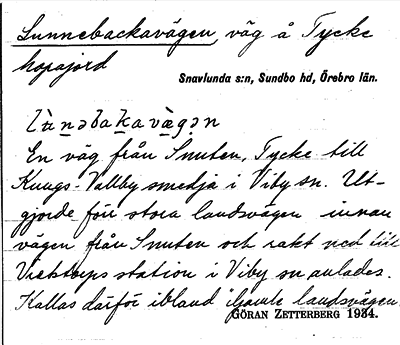 Lunnebackavägen, väg å Tycke
hopajord
Snavlunda s:n, Sundbo hd, Örebro län.
En väg från Snuten, Tycke till
Kungs-Vallby smedja i Viby sn. Ut-
gjorde förr stora landsvägen innan
vägen från Snuten och rakt ned till
station i Viby sn anlades.
Kallas därför ibland "gamla landsvägen
GÖRAN ZETTERBERG 1934.